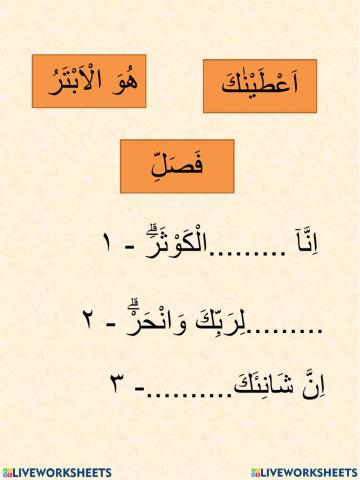 اَعْطَيْنٰكَ
هُوَ الْاَبْتَرُ
فَصَلِّ
اِنَّآ .........الْكَوْثَرَۗ - ١
.........لِرَبِّكَ وَانْحَرْۗ - ٢
اِنَّ شَانِئَكَ..........- ٣
LIVEWORKSHEETS
LIVEWORKSHEETS